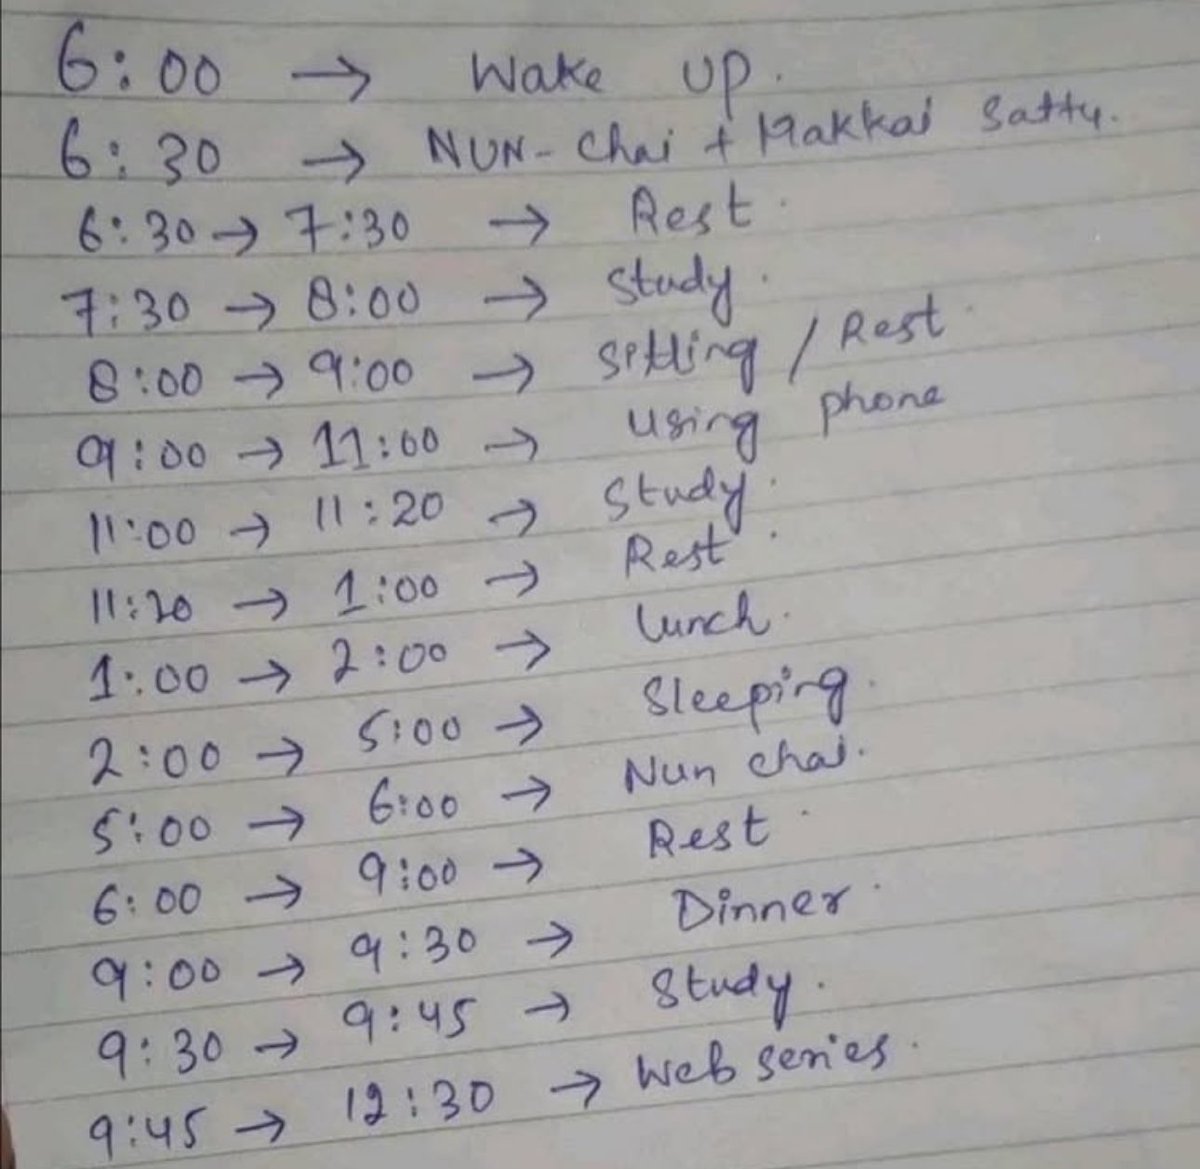 6:00 → Wake up.
6:30 → NUN-Chai + Makkai Sattu.
6:30 → 7:30 → Rest.
7:30 → 8:00 → Study.
8:00 → 9:00 → Sitting / Rest.
9:00 → 11:00 → Using phone
11:00 → 11:20 → Study.
11:20 → 1:00 → Rest.
1:00 → 2:00 → Lunch.
2:00 → 5:00 → Sleeping.
5:00 → 6:00 → Nun chai.
6:00 → 9:00 → Rest.
9:00 → 9:30 → Dinner.
9:30 → 9:45 → Study.
9:45 → 12:30 → Web series.